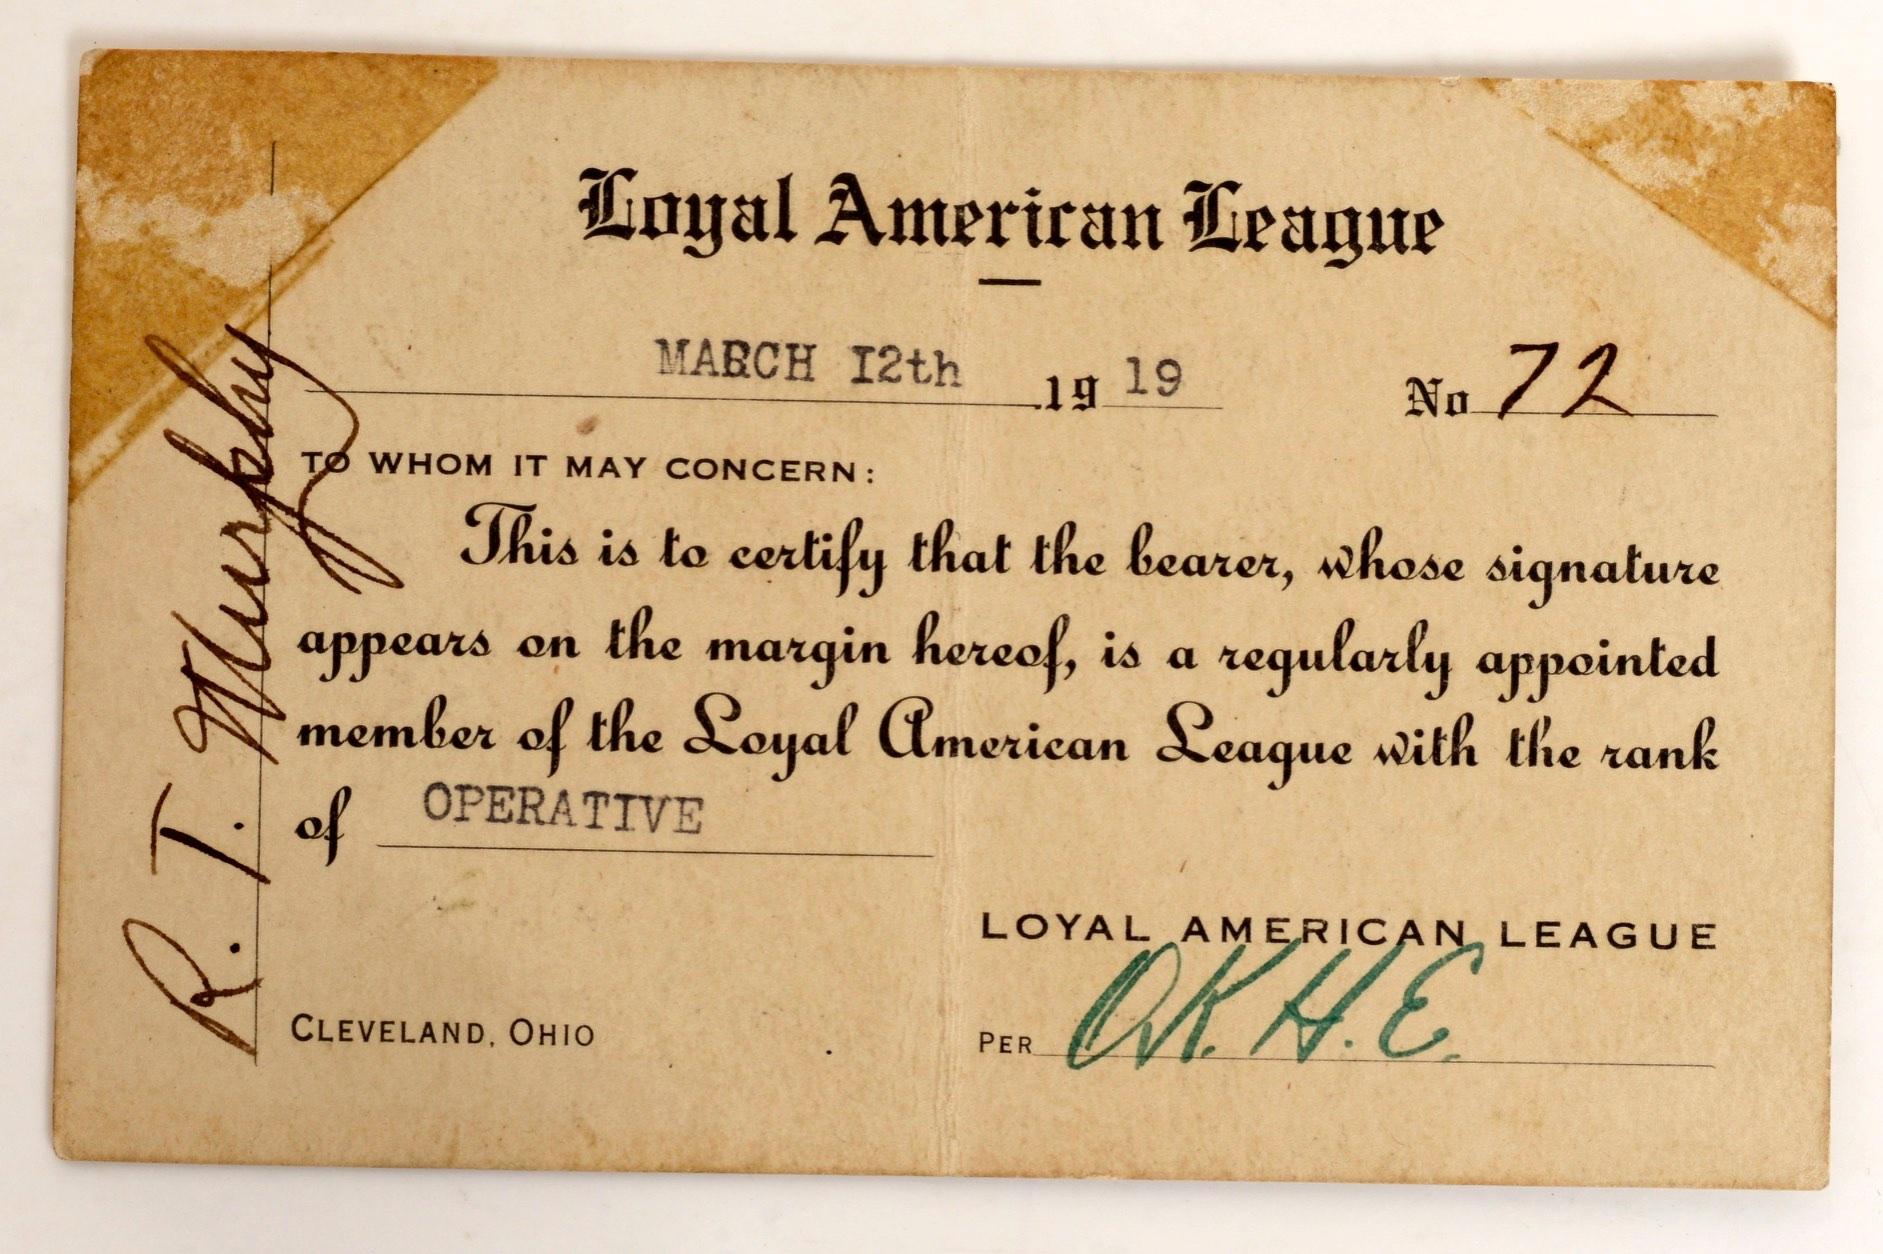 Loyal American League
MARCH 12th 1919 No 72
TO WHOM IT MAY CONCERN:
This is to certify that the bearer, whose signature
appears on the margin hereof, is a regularly appointed
member of the Loyal American League with the rank
of OPERATIVE
LOYAL AMERICAN LEAGUE
CLEVELAND, OHIO PER O.K. H.E.
R. T. Murphy